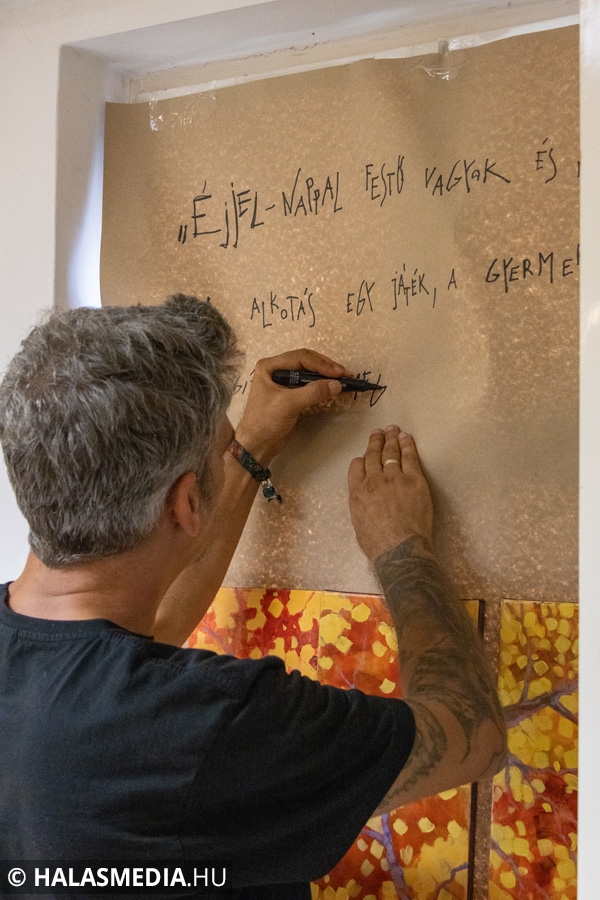 „ÉJJEL-NAPPAL FESTŐ VAGYOK ÉS
ALKOTÁS EGY JÁTÉK, A GYERME
© HALASMEDIA.HU